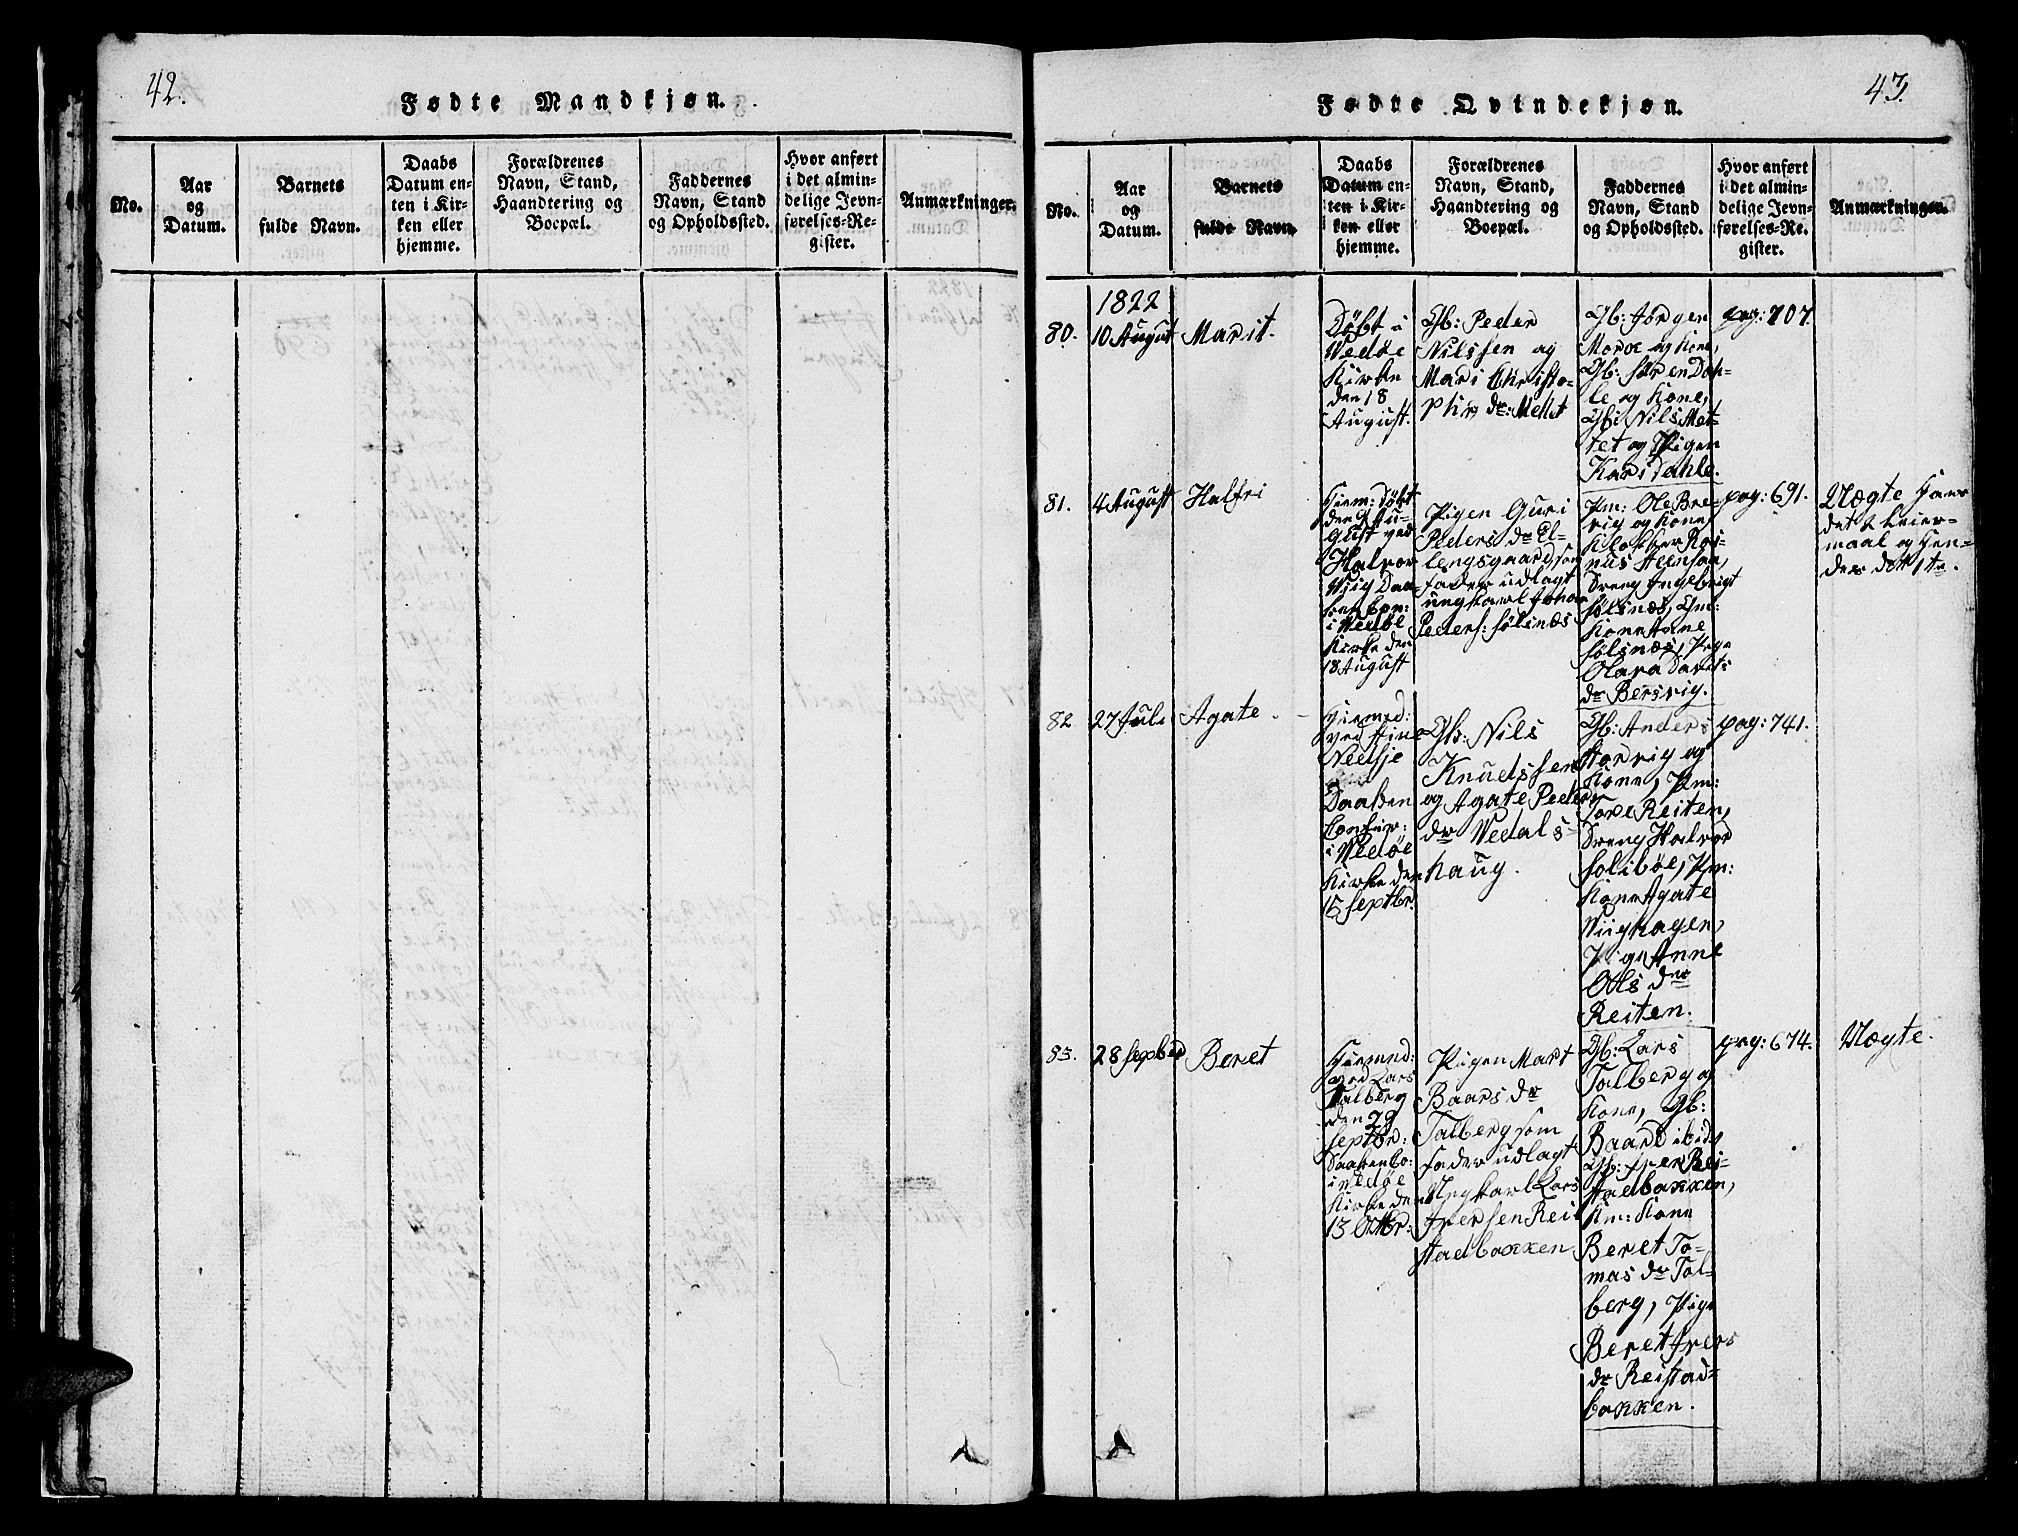 42.
Fødte Mandkjøn.
No.
Aar
og
Datum.
Barnets
fulde Navn.
Daabs
Datum en-
ten i Kir-
ken eller
hjemme.
Forældrenes
Navn, Stand,
Haandtering og
Boepæl.
Faddernes
Navn, Stand
og Opholdssted.
Hvor anført
i det almin-
delige Jevn-
førelses-Re-
gister.
Anmærkninger.
43.
Fødte Qvindekjøn.
No.
Aar
og
Datum.
Barnets
fulde Navn
Daabs
Datum en-
ten i Kir-
ken eller
hjemme.
Forældrenes
Navn, Stand,
Haandtering og
Boepæl.
Faddernes
Navn, Stand
og Opholdssted.
Hvor anført
i det almin-
delige Jevn-
førelses-Re-
gister.
Anmærkninger.
1822
80.
10 August
Marit.
Døbt i
Vedøe
Kirke
den 18
August.
Gb: Peder
Nilssen og
Mari Christo-
phr: dr: Mettet
Gb: Jørgen
Moroe og Kone,
Gb: Søren Dah-
le og Kone,
Gb: Nils Met-
tet og Pigen
Kari Dahle.
pag: 707.
81.
4 August
Halfri
Hiem: døbt
den 9 Au-
gust ved
Halvor
Vig Daa-
ben Con:
i Vedøe
Kirke den
18 August
Pigen Guri
Peders dr El-
lengsgaard som
fader udlagt
ungkarl Johan
Peders: Sølsnæs
Pm: Ole Bre-
vig og Kone
Klokker Ras-
mus Steensen,
Dreng Ingebrigt
Sølsnæs, Gm:
Kone Anne
Sølsnæs, Pige
Olava Davids
dr Bersvig.
pag: 691.
Uægte Hans
det 2 Leier-
maal og Hen-
des det 1te.
82
27 Juli
Agate.
Hiemmed:
ved Stine
Neelsje
Daaben
Confir:
i Vedøe
Kirke den
15 Septbr.
Gb: Nils
Knudssen
og Agate Peders
dr Vedals-
haug.
Gb: Anders
Horvig og
Kone, Pm:
Tore Reiten,
Dreng Halvor
Solibøe, Pm:
Kone Agate
Vinghagen,
Pige Anne
Ols dr
Reiten.
pag: 741.
83.
28 Septbr
Beret
Hiemmed:
ved Lars
Talberg
den 29
Septbr:
Daaben Co:
i Vedøe
Kirke den
13 Octbr:
Pigen Mart
Baars dr
Talberg som
fader udlagt
Ungkarl Lars
Iversen Reit
stadbakken
Gb: Lars
Talberg og
Kone, Gb:
Baard ibid,
Gb: Iver Rei-
stadbakken,
Km: Kone
Beret To-
mas dr Tal-
berg, Pige
Beret Ivers
dr Reistad-
bakken.
pag: 674.
Uægte.